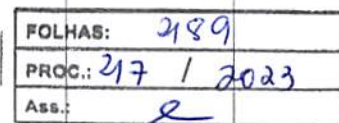 FOLHAS: 2189
PROC.: 217 / 2023
Ass.: